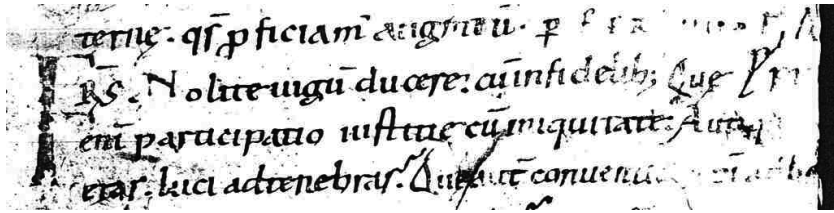 terne. qs̄ ꝓficiam' augm̄tū. ꝑ
R̄S. Nolite iugū ducere: cū infidelib; Que
eni̅ participatio iustitie cū iniquitate: Aut
etas. luci ad tenebras. Que aut̄ conveni